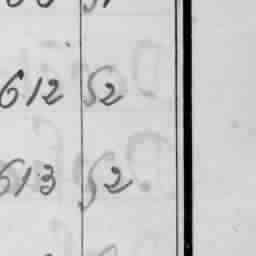 612 52
613 52